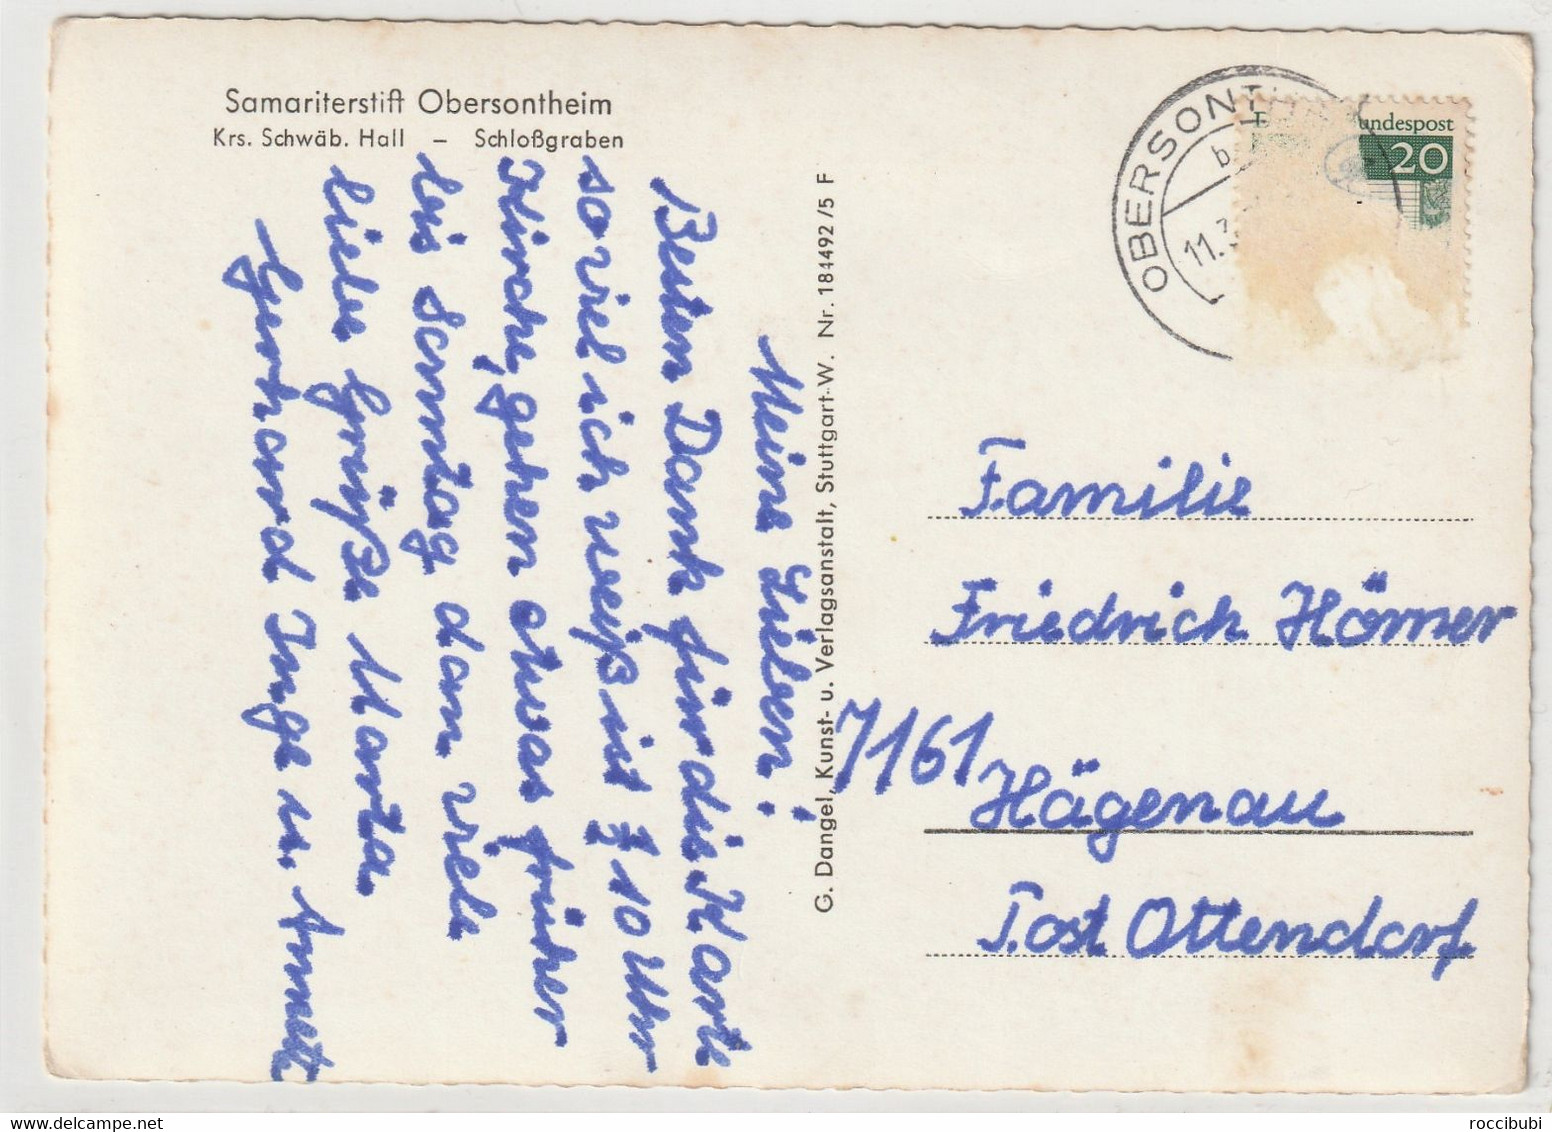 Samariterstift Obersontheim
Krs. Schwäb. Hall – Schloßgraben
Meine Lieben!
Besten Dank für die Karte
soviel ich weiß ist ½ 10 Uhr
Kirche, gehen etwas früher
bis Sonntag dann viele
liebe Grüße Marta
Gerhard Inge u. Annet
G. Dangel, Kunst- u. Verlagsanstalt, Stuttgart-W. Nr. 184492/5 F
OBERSONTH
b
11.3
undespost
20
Familie
Friedrich Hörner
7161 Hägenau
Post Ottendorf
www.delcampe.net
roccibubi